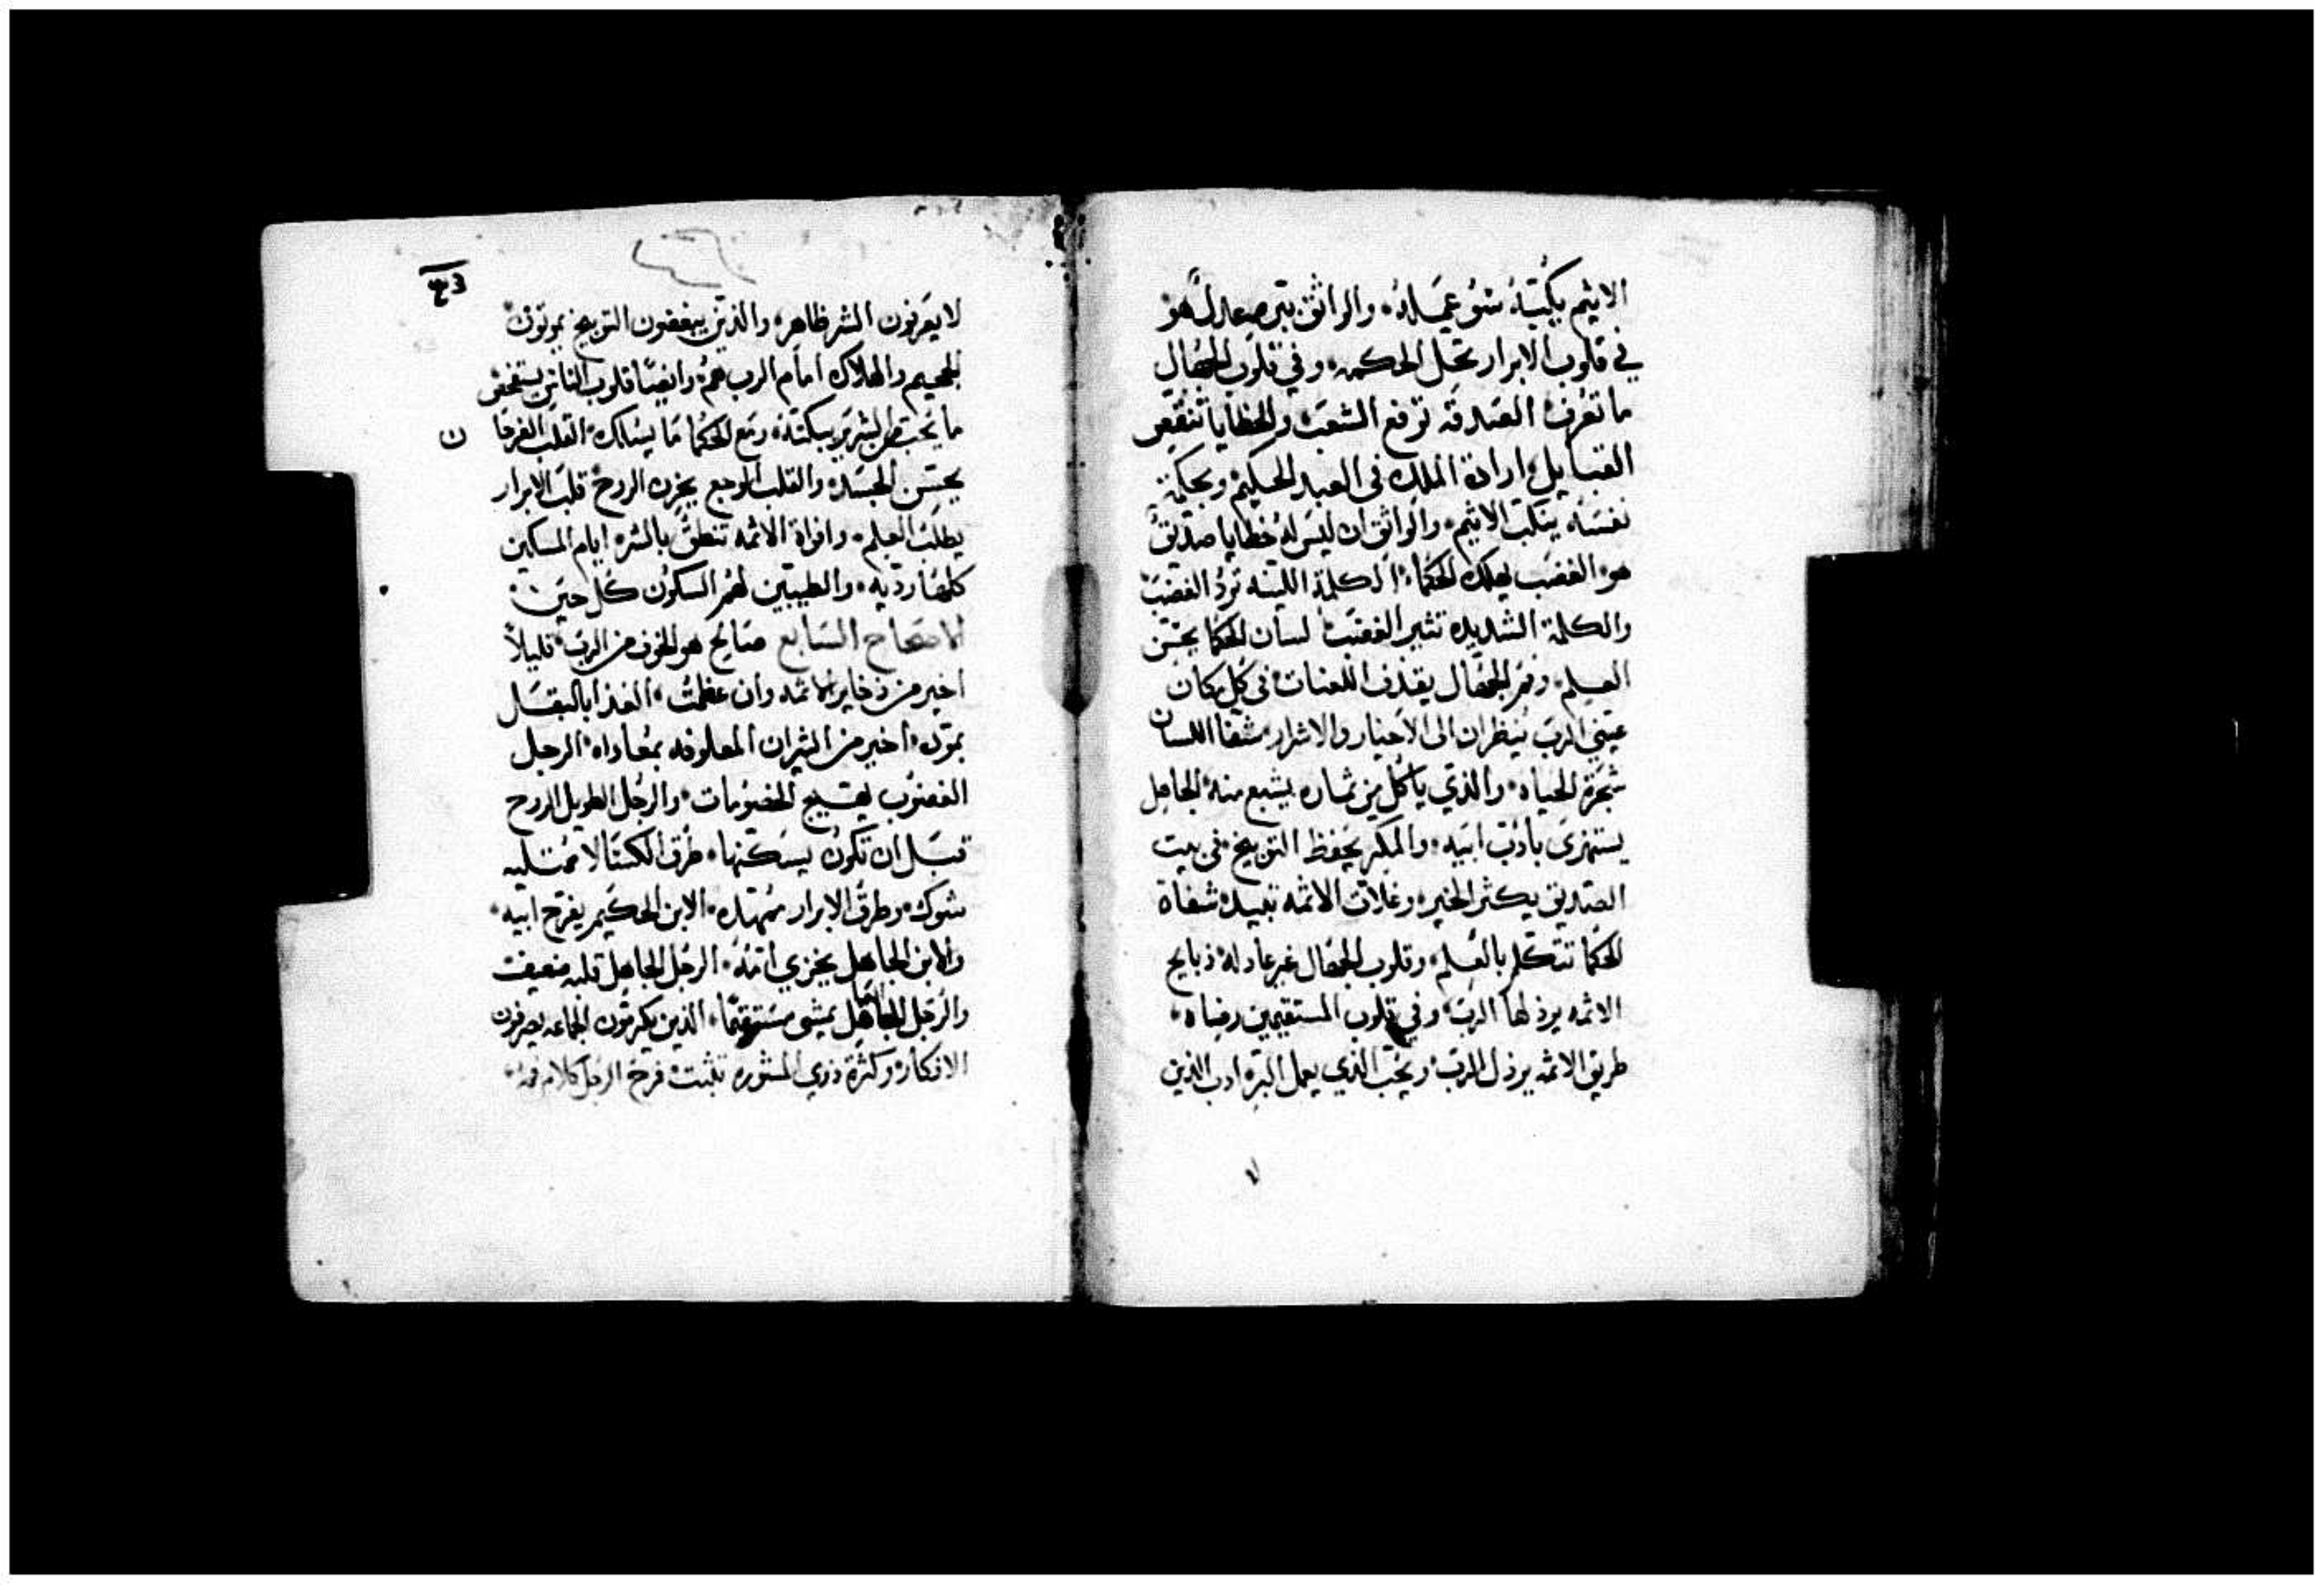 الاثيم يكبته سو عمله، والواثق ببره عادل هو
في قلوب الابرار تحل الحكمه، وفي قلوب الجهال
ما تعرف، الصدقه ترفع الشعب، والخطايا تنقص
القبايل، ارادة الملك في العبد الحكيم، وبحكمة
نفسه ينكب الاثيم، والواثق ان ليس له خطايا صديق
هو، الغضب يهلك الحكما، الكلمة اللينه ترد الغضب
والكلمة الشديده تثير الغضب، لسان الحكما يحسن
العلم، وفم الجهال يقذف اللعنات، في كل مكان
عيني الرب ينظران الى الاخيار والاشرار، شفا اللسان
شجرة الحياه، والذي ياكل من ثماره يشبع منه، الجاهل
يستهزي بادب ابيه، والمكر يحفظ التوبيخ، في بيت
الصديق يكثر الخير، وغلات الاثمه تعبيده شفاة
الحكما تتكلم بالعلم، وقلوب الجهال غير عادله، ذبايح
الاثمه يرذلها الرب، وفي قلوب المستقيمين رضاه،
طريق الاثمه يرذل الرب، ويحب الذي يعمل البر، ادب الذين
لا يعرفون الشر ظاهر، والذين يبغضون التوبيخ يموتون
الجحيم والهلاك امام الرب هم، وايضا قلوب الناس
ما يحب الشرير يبكته، ومع الحكما ما يسلك، القلب الفرحا ن
يحسن الجسد، والقلب الموجع يحزن الروح، قلب الابرار
يطلب العلم، وافواة الاثمه تنطق بالشر، ايام المساكين
كلها رديه، والطيبين لهم السكون كل حين،
الاصحاح السابع صالح هو الخوف من الرب، قليلاً
اخير من ذخاير الاثمه وان عظمت، الغذا بالبقل
بموده، اخير من الثيران المعلوفه بمعاداه، الرجل
الغضوب يهيج الخصومات، والرجل الطويل الروح
قبل ان تكون يسكنها، طرق الكسالا ممتليه
شوك، وطرق الابرار ممهده، الابن الحكيم يفرح ابيه،
والابن الجاهل يخزي امه، الرجل الجاهل قلبه ضعيف
والرجل العاقل يمشي مستقيما، الذين يكرمون الجماعه يعرفون
الافكار، وكثرة ذوي المشوره تثبت، فرح الرجل كلام فمه،